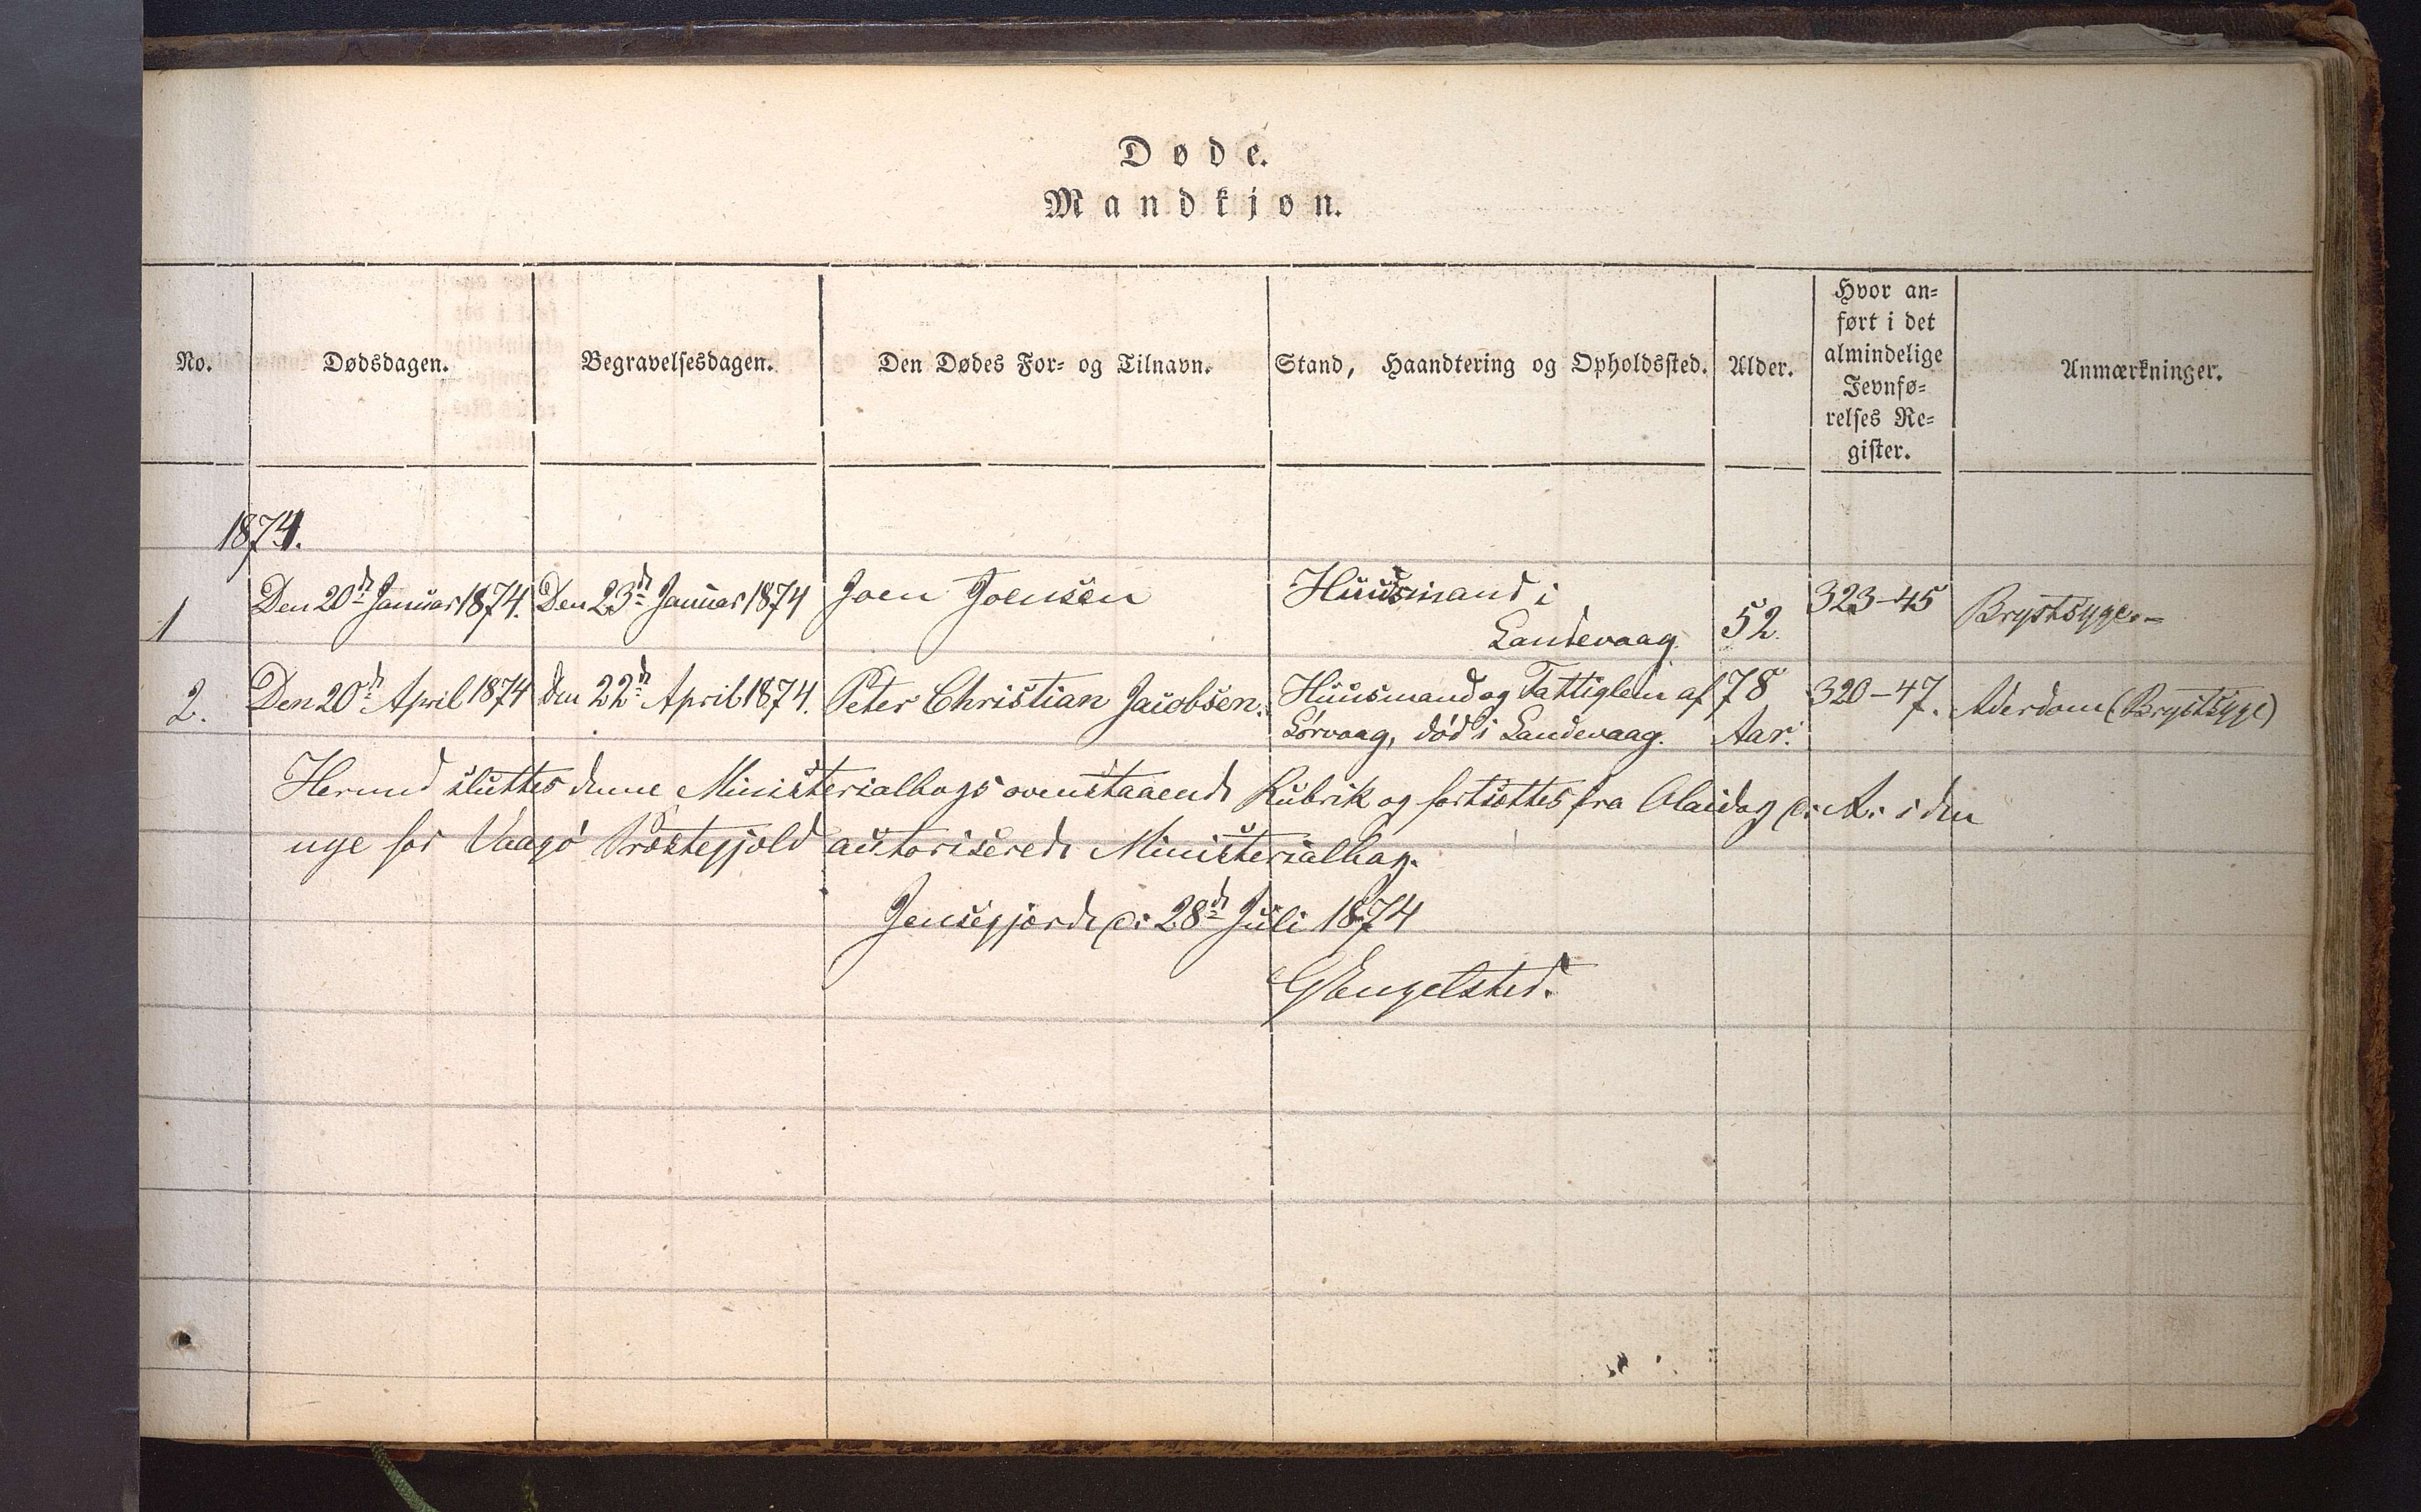 Døde.
Mandkjøn.
No.
Dødsdagen.
Begravelsesdagen.
Den Dødes For- og Tilnavn.
Stand, Haandtering og Opholdssted.
Alder.
Hvor an=
ført i det
almindelige
Jevnfø=
relses Re=
gister.
Anmærkninger.
1874.
1 Den 20de Januar 1874. Den 23de Januar 1874 Joen Joensen Huusmand i
Sandevaag. 52. 323-45 Brystsyge.-
2. Den 20de April 1874 den 22de April 1874. Peter Christian Jacobsen. Huusmand og Fattiglem af 78 320-47. Alderdom (Brystsyge)
Sørvaag, død i Sandevaag. Aar.
Hermed sluttes denne Ministerialbogs ovenstaaende Rubrik og fortsættes fra Olaidag d. A. i den
nye for Vaagø Præstegjeld autoriserede Ministerialbog.
Jensegjærde d. 28de Juli 1874
GEngelsted.